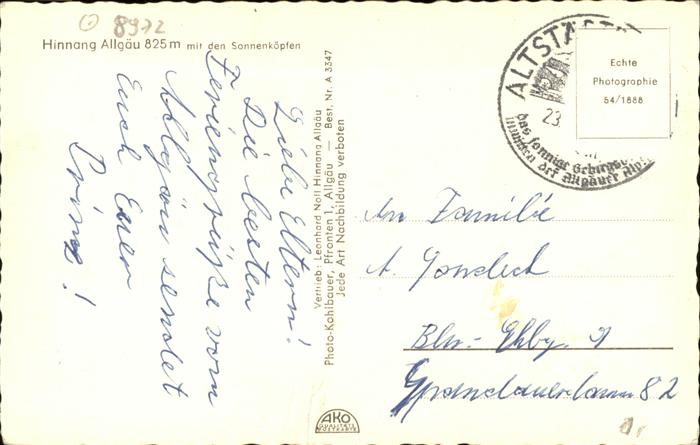 8972
Hinnang Allgäu 825 m mit den Sonnenköpfen
Liebe Eltern!
Die besten
Feriengrüße vom
Allgäu sendet
Euch Euer
Prinz!
Vertrieb: Leonhard Noll Hinnang Allgäu
Photo-Kohlbauer, Pfronten 1, Allgäu — Best. Nr. A 3347
Jede Art Nachbildung verboten
AKO
QUALITÄTS
POSTKARTE
ALTSTÄDTE
23.
das sonnige Gebirgs
inmitten der Allgäuer Alp
Echte
Photographie
54/1888
An Familie
A.
Bln.- Chbg. 9
Spandauerdamm 82